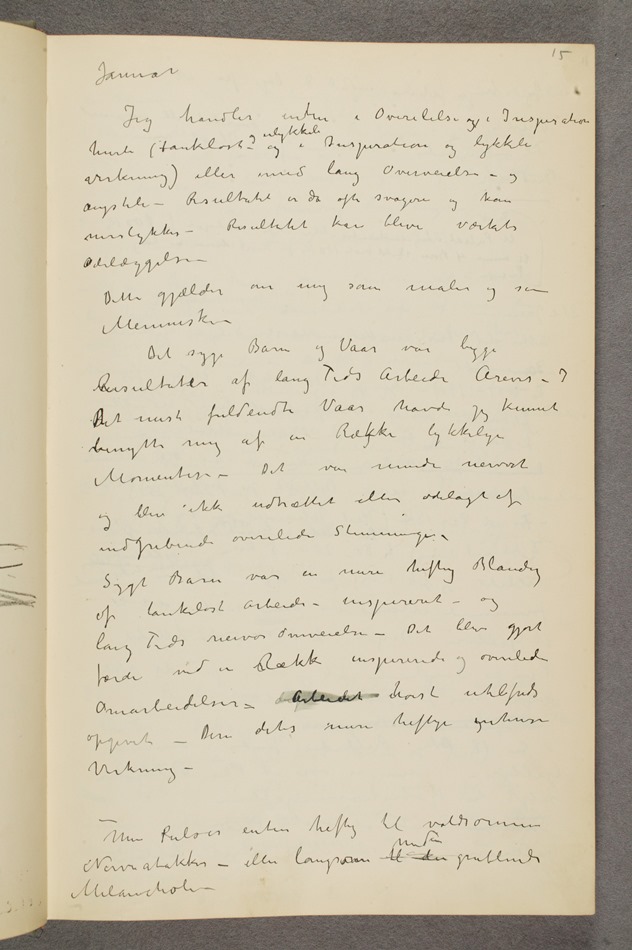 15
Januar
Jeg handler enten i Overilelse og i Inspiration
hurti (tankeløst – og ulykkeli og i Inspiration og lykkeli
virkning) eller med lang Overveielse – og
ængstele – Resultatet er da ofte svagere og kan
mislykkes – Resultatet kan blive værkets
ødelæggelse –
Dette gjælder om mig som maler og som
Menneske –
Det syge Barn og Vaar var begge
Resultater af lang Tids Arbeide
Det mest fuldendte Vaar havde jeg kunnet
benytte mig af en Række lykkelige
Momenter – Det var mindre nervøst
og blev ikke udtrættet eller ødelagt af
indgribende overilede Stemninger –
Sygt Barn var en mere heftig Blanding
af tankeløst arbeide – inspireret – og
lang Tids nervøs Overveielse – Det blev gjort
færdi ved en Række inspirerede og overilede
Omarbeidelser – Arbeidet høist utilfreds
opgivet – Derfor dets mere heftige intense
Virkning –
Min Puls er enten heftig til voldsomme
Nerveatakker – eller langsom til den under grublende
Melancholi –